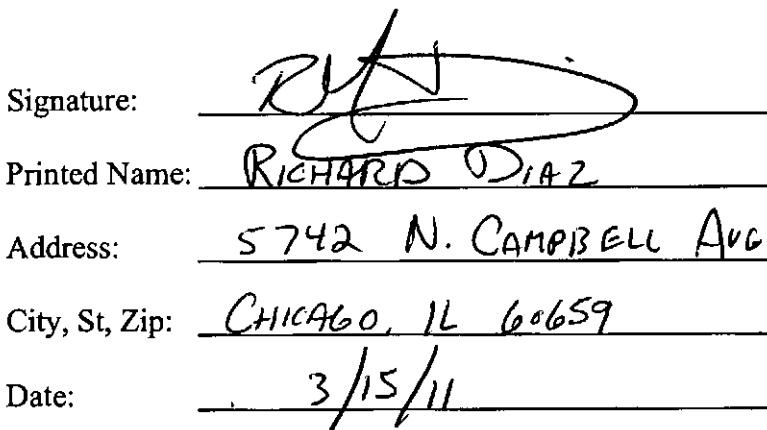 Signature:
Printed Name: RICHARD DIAZ
Address: 5742 N. CAMPBELL AVE
City, St, Zip: CHICAGO, IL 60659
Date: 3/15/11